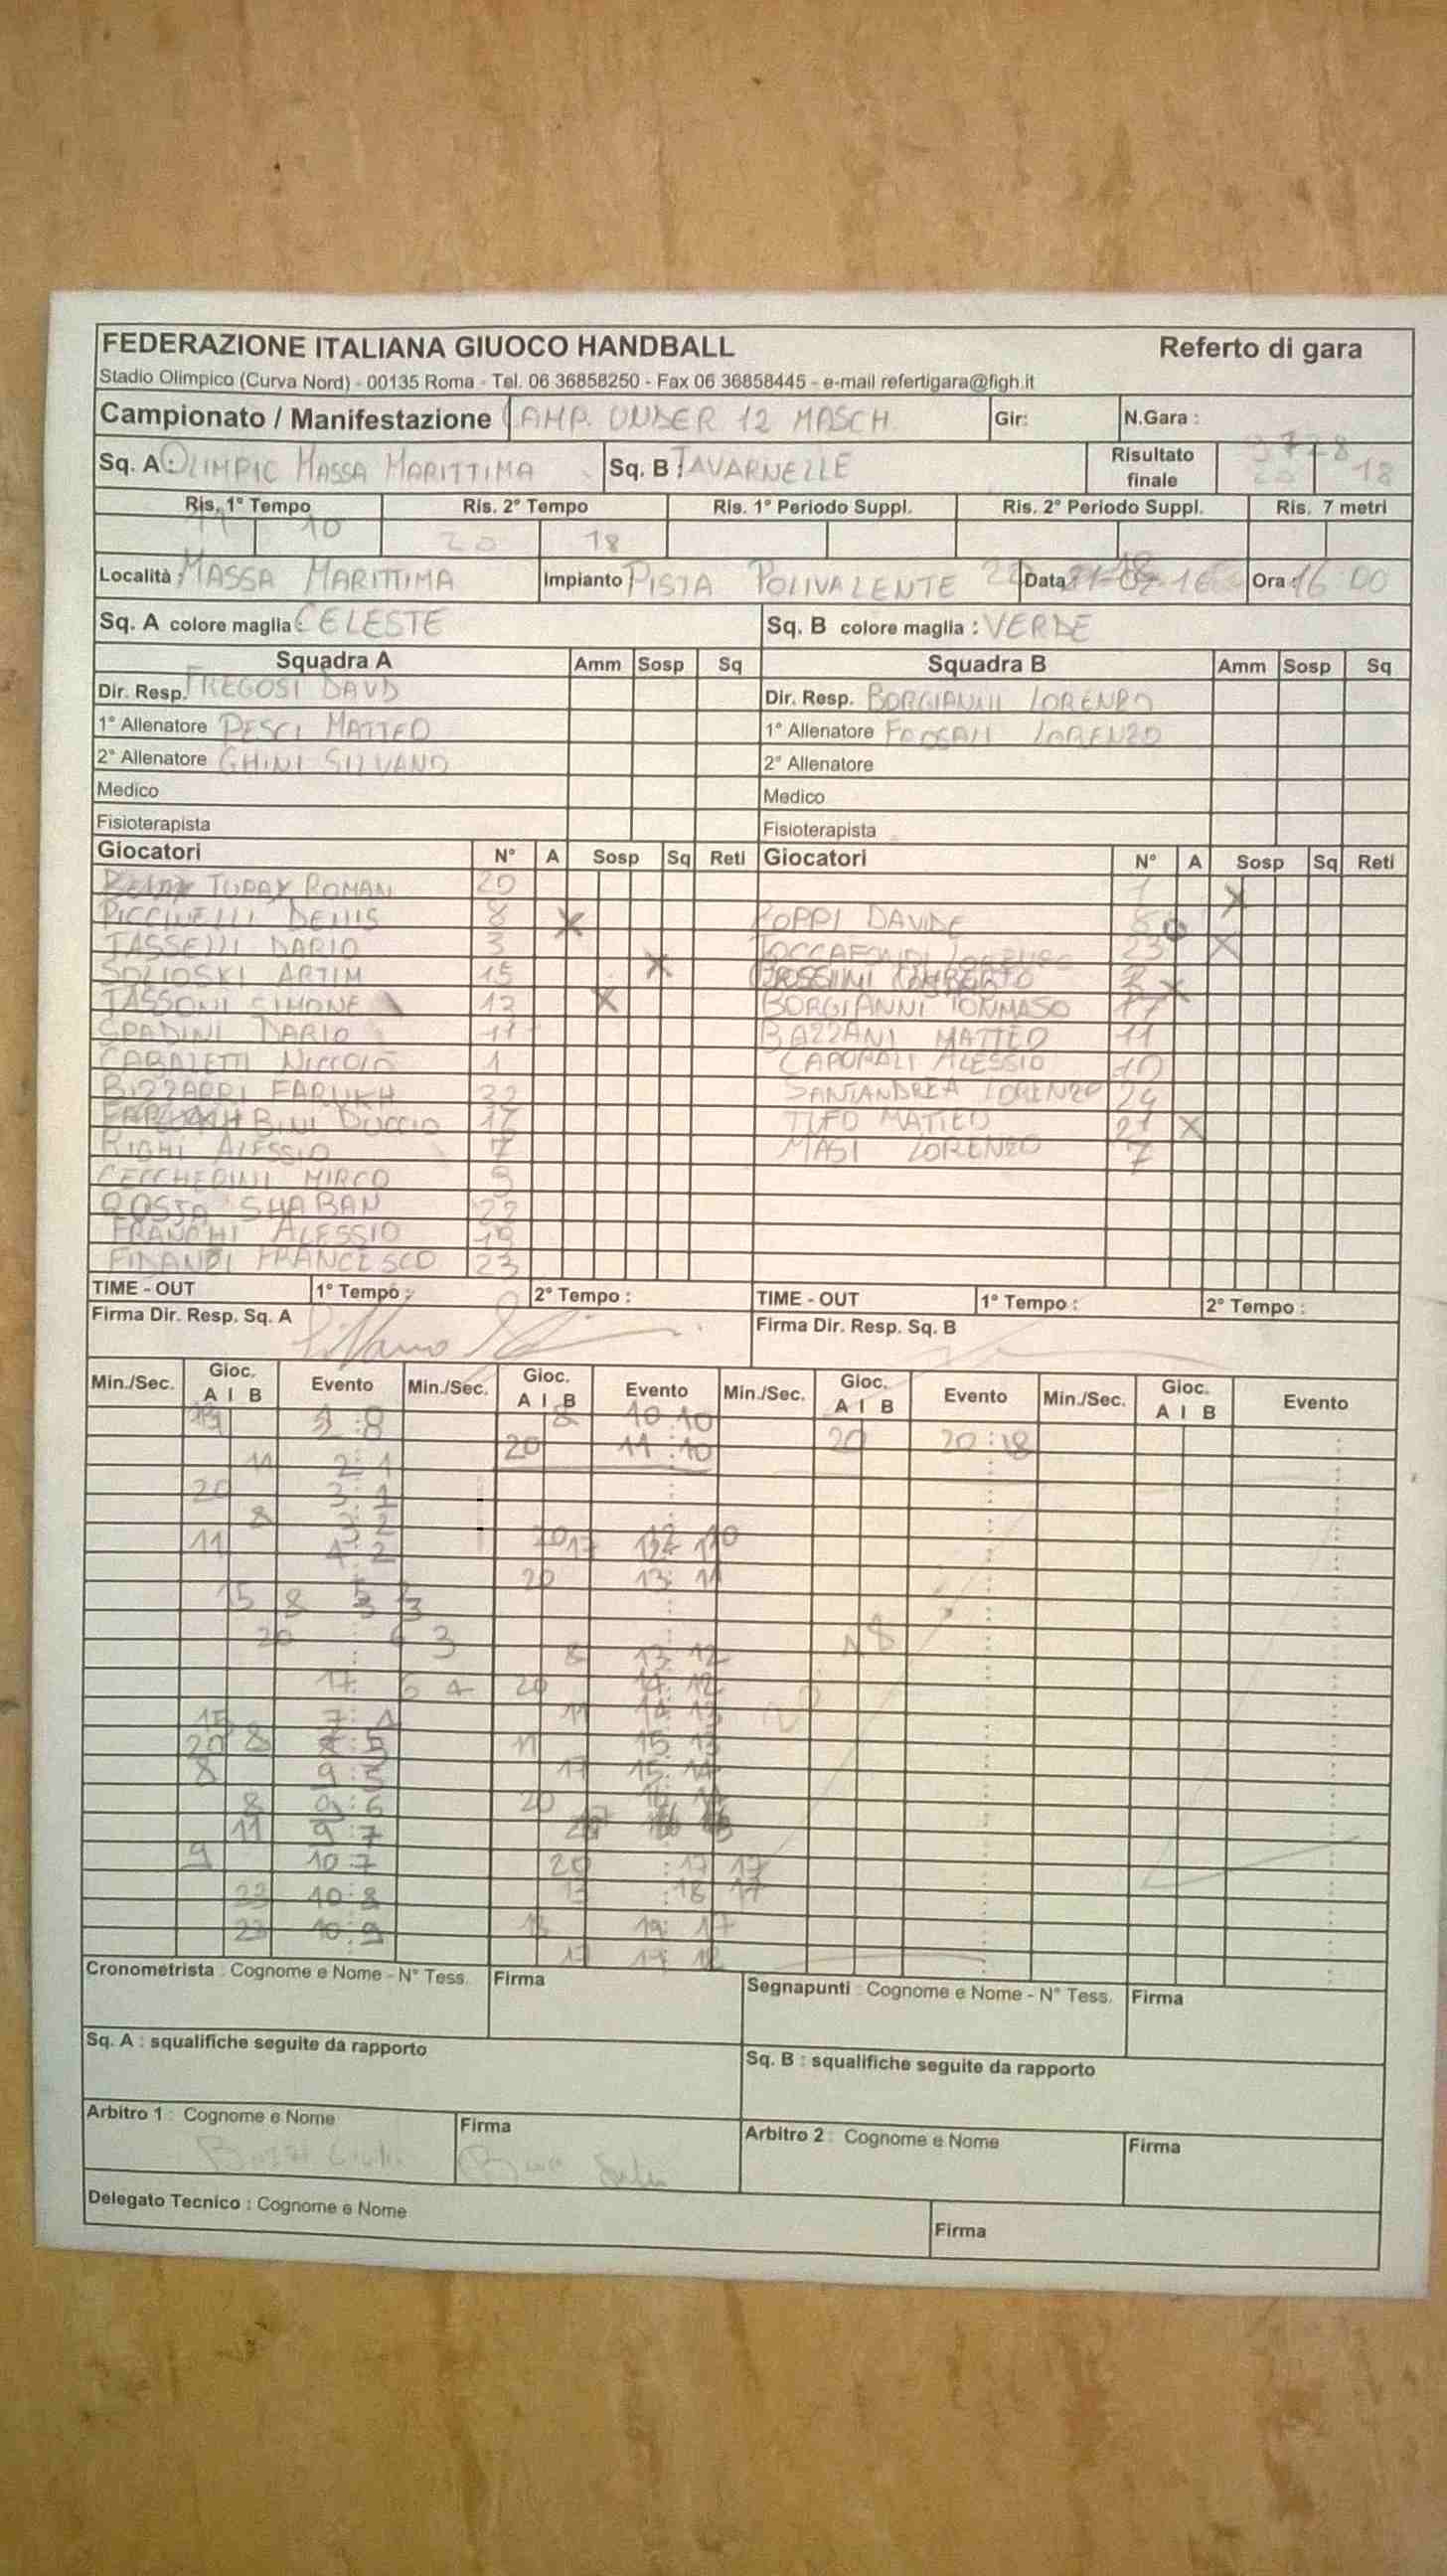 FEDERAZIONE ITALIANA GIUOCO HANDBALL Referto di gara
Stadio Olimpico (Curva Nord) - 00135 Roma - Tel. 06 36858250 - Fax 06 36858445 - e-mail refertigara@figh.it
Campionato / Manifestazione CAMP. UNDER 12 MASCH. Gir: N.Gara :
Sq. A : OLIMPIC MASSA MARITTIMA Sq. B : TAVARNELLE Risultato finale 20 18
Ris. 1° Tempo Ris. 2° Tempo Ris. 1° Periodo Suppl. Ris. 2° Periodo Suppl. Ris. 7 metri
11 10 20 18
Località : MASSA MARITTIMA Impianto PISTA POLIVALENTE Data Ora : 16 00
Sq. A colore maglia : CELESTE Sq. B colore maglia : VERDE
Squadra A Amm Sosp Sq Squadra B Amm Sosp Sq
Dir. Resp. FREGOSI DAVID Dir. Resp. BORGIANNI LORENZO
1° Allenatore PESCI MATTEO 1° Allenatore LORENZO
2° Allenatore GHINI SILVANO 2° Allenatore
Medico Medico
Fisioterapista Fisioterapista
Giocatori N° A Sosp Sq Reti Giocatori N° A Sosp Sq Reti
TUPAY ROMAN 20 1 X
PICCINELLI DENIS 8 X POPPI DAVIDE
TASSELLI DARIO 3 23 X
ARTIM 15 X
TASSONI SIMONE 13 X BORGIANNI TOMMASO 17
SPADINI DARIO 11 BAZZANI MATTEO 11
NICCOLÒ 1 CAPORALI ALESSIO 10
BIZZARRI FARUKH 32 SANTANDREA LORENZO 24
BINI DUCCIO TIFO MATTEO 21 X
RIGHI ALESSIO 7 MASI LORENZO 7
CECCHERINI MIRCO 9
SHABAN 22
FRANCHI ALESSIO 19
FRANCESCO 23
TIME - OUT 1° Tempo : 2° Tempo : TIME - OUT 1° Tempo : 2° Tempo :
Firma Dir. Resp. Sq. A Firma Dir. Resp. Sq. B
Min./Sec. Gioc. A I B Evento Min./Sec. Gioc. A I B Evento Min./Sec. Gioc. A I B Evento Min./Sec. Gioc. A I B Evento
8 10:10
20 11:10 20 20:18
11 2:1
20 3:1
8 3:2
11 4:2
20 13:11
15 8
20 6 3
8 13:12
17 6 4 20 14:12
15 7:4 11 14:13
20 8 8:5 11 15:13
8 9:5 17 15:14
8 9:6 20 16:14
11 9:7
9 10:7 20 17 17
23 10:8 13 18 17
23 10:9 13 19:17
17 19 18
Cronometrista : Cognome e Nome - N° Tess. Firma Segnapunti : Cognome e Nome - N° Tess. Firma
Sq. A : squalifiche seguite da rapporto Sq. B : squalifiche seguite da rapporto
Arbitro 1 : Cognome e Nome Firma Arbitro 2 : Cognome e Nome Firma
Delegato Tecnico : Cognome e Nome Firma